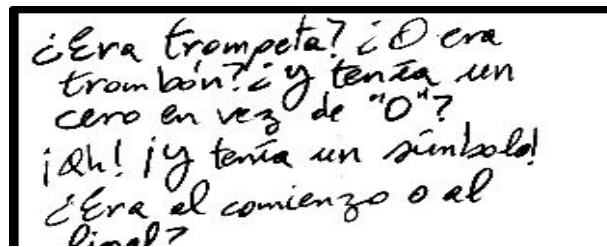 ¿Era trompeta? ¿O era
trombón? ¿y tenía un
cero en vez de "O"?
¡Ah! ¡y tenía un símbolo!
¿Era al comienzo o al
final?